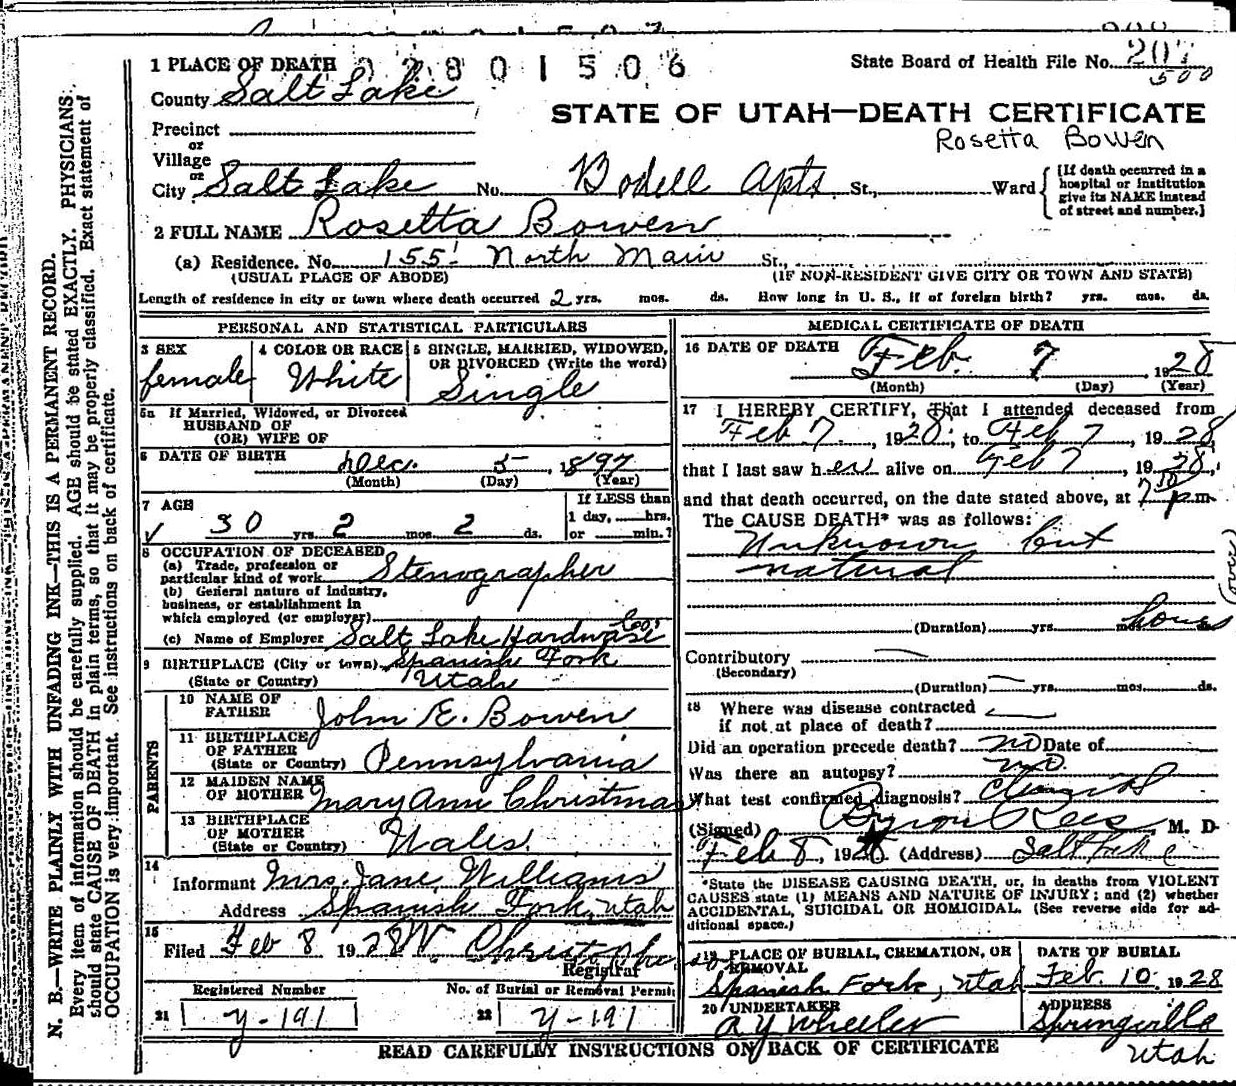 1 PLACE OF DEATH 02801506
State Board of Health File No. 207
500
County Salt Lake
STATE OF UTAH—DEATH CERTIFICATE
Rosetta Bowen
Precinct
or
Village
or
City Salt Lake No. Bodell Apts St., Ward
[If death occurred in a
hospital or institution
give its NAME instead
of street and number.]
2 FULL NAME Rosetta Bowen
(a) Residence. No. 155 North Main St.,
(USUAL PLACE OF ABODE) (IF NON-RESIDENT GIVE CITY OR TOWN AND STATE)
Length of residence in city or town where death occurred 2 yrs. mos. ds. How long in U. S., if of foreign birth? yrs. mos. ds.
PERSONAL AND STATISTICAL PARTICULARS
3 SEX
female
4 COLOR OR RACE
White
5 SINGLE, MARRIED, WIDOWED,
OR DIVORCED (Write the word)
Single
5a If Married, Widowed, or Divorced
HUSBAND OF
(OR) WIFE OF
6 DATE OF BIRTH Dec. 5, 1897
(Month) (Day) (Year)
7 AGE
30 yrs. 2 mos. 2 ds.
If LESS than
1 day, hrs.
or min.?
8 OCCUPATION OF DECEASED
(a) Trade, profession or
particular kind of work Stenographer
(b) General nature of industry,
business, or establishment in
which employed (or employer)
(c) Name of Employer Salt Lake Hardware Co.
9 BIRTHPLACE (City or town) Spanish Fork
(State or Country) Utah
PARENTS
10 NAME OF
FATHER John E. Bowen
11 BIRTHPLACE
OF FATHER
(State or Country) Pennsylvania
12 MAIDEN NAME
OF MOTHER Mary Ann Christmas
13 BIRTHPLACE
OF MOTHER
(State or Country) Wales.
14
Informant Mrs. Jane Williams
Address Spanish Fork, Utah
15
Filed Feb 8 1928 W. Christophe
Registrar
Registered Number
21 Y-191
No. of Burial or Removal Permit
22 Y-191
MEDICAL CERTIFICATE OF DEATH
16 DATE OF DEATH Feb. 7, 1928
(Month) (Day) (Year)
17 I HEREBY CERTIFY, That I attended deceased from
Feb 7, 1928, to Feb 7, 1928,
that I last saw her alive on Feb 7, 1928,
and that death occurred, on the date stated above, at 7 p.m.
The CAUSE DEATH* was as follows:
Unknown but
natural
(over)
(Duration) yrs. mos. hours
Contributory
(Secondary)
(Duration) yrs. mos. ds.
18 Where was disease contracted
if not at place of death?
Did an operation precede death? no Date of
Was there an autopsy? no.
What test confirmed diagnosis?
(Signed) Byron Rees M. D.
Feb 8, 1928 (Address) Salt Lake C
*State the DISEASE CAUSING DEATH, or, in deaths from VIOLENT
CAUSES state (1) MEANS AND NATURE OF INJURY; and (2) whether
ACCIDENTAL, SUICIDAL OR HOMICIDAL. (See reverse side for ad-
ditional space.)
19 PLACE OF BURIAL, CREMATION, OR
REMOVAL
Spanish Fork, Utah
DATE OF BURIAL
Feb. 10. 1928
20 UNDERTAKER
A Y Wheeler
ADDRESS
Springville
Utah
READ CAREFULLY INSTRUCTIONS ON BACK OF CERTIFICATE
N. B.—WRITE PLAINLY WITH UNFADING INK—THIS IS A PERMANENT RECORD.
Every item of information should be carefully supplied. AGE should be stated EXACTLY. PHYSICIANS
should state CAUSE OF DEATH in plain terms, so that it may be properly classified. Exact statement of
OCCUPATION is very important. See instructions on back of certificate.